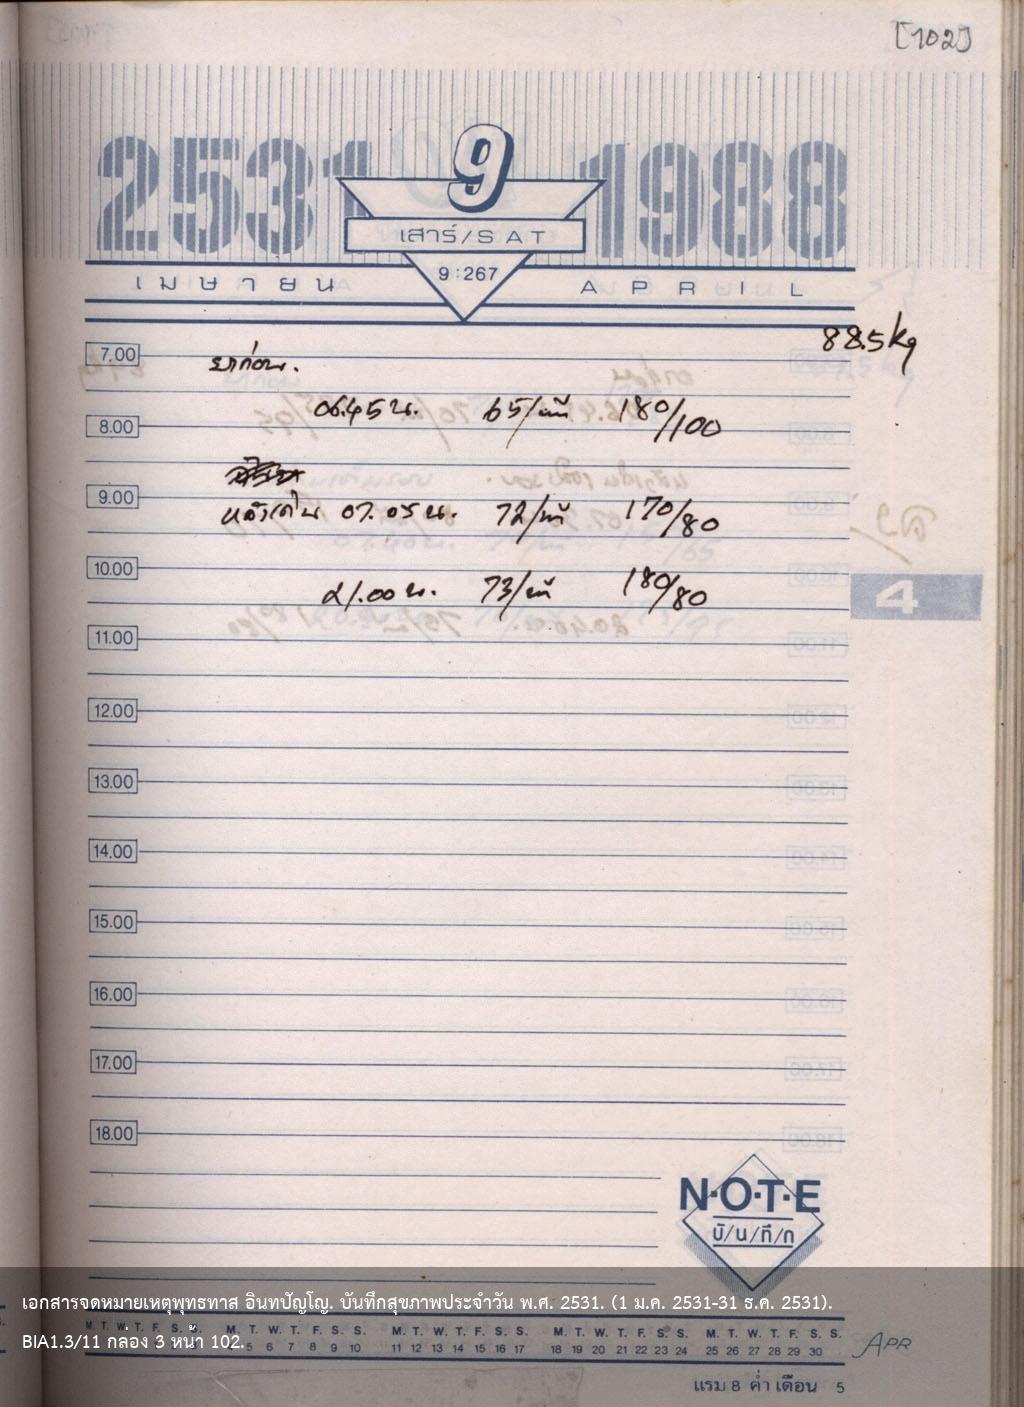 [102]
2531 9 1988
เสาร์/SAT
9:267
เมษายน APRIL
88.5 kg
7.00
ยาก่อน.
06.45 น. 65/นาที 180/100
8.00
9.00
หลังเดิน 07.05 น. 72/นาที 170/80
10.00
21.00 น. 73/นาที 180/80
4
11.00
12.00
13.00
14.00
15.00
16.00
17.00
18.00
N·O·T·E
บั/น/ทึ/ก
เอกสารจดหมายเหตุพุทธทาส อินทปัญโญ. บันทึกสุขภาพประจำวัน พ.ศ. 2531. (1 ม.ค. 2531-31 ธ.ค. 2531).
M. T. W. T. F. S. S. M. T. W. T. F. S. S. M. T. W. T. F. S. S. M. T. W. T. F. S. S. M. T. W. T. F. S. S.
BIA1.3/11 กล่อง 3 หน้า 102.
5 6 7 8 9 10 11 12 13 14 15 16 17 18 19 20 21 22 23 24 25 26 27 28 29 30
APR
แรม 8 ค่ำ เดือน 5